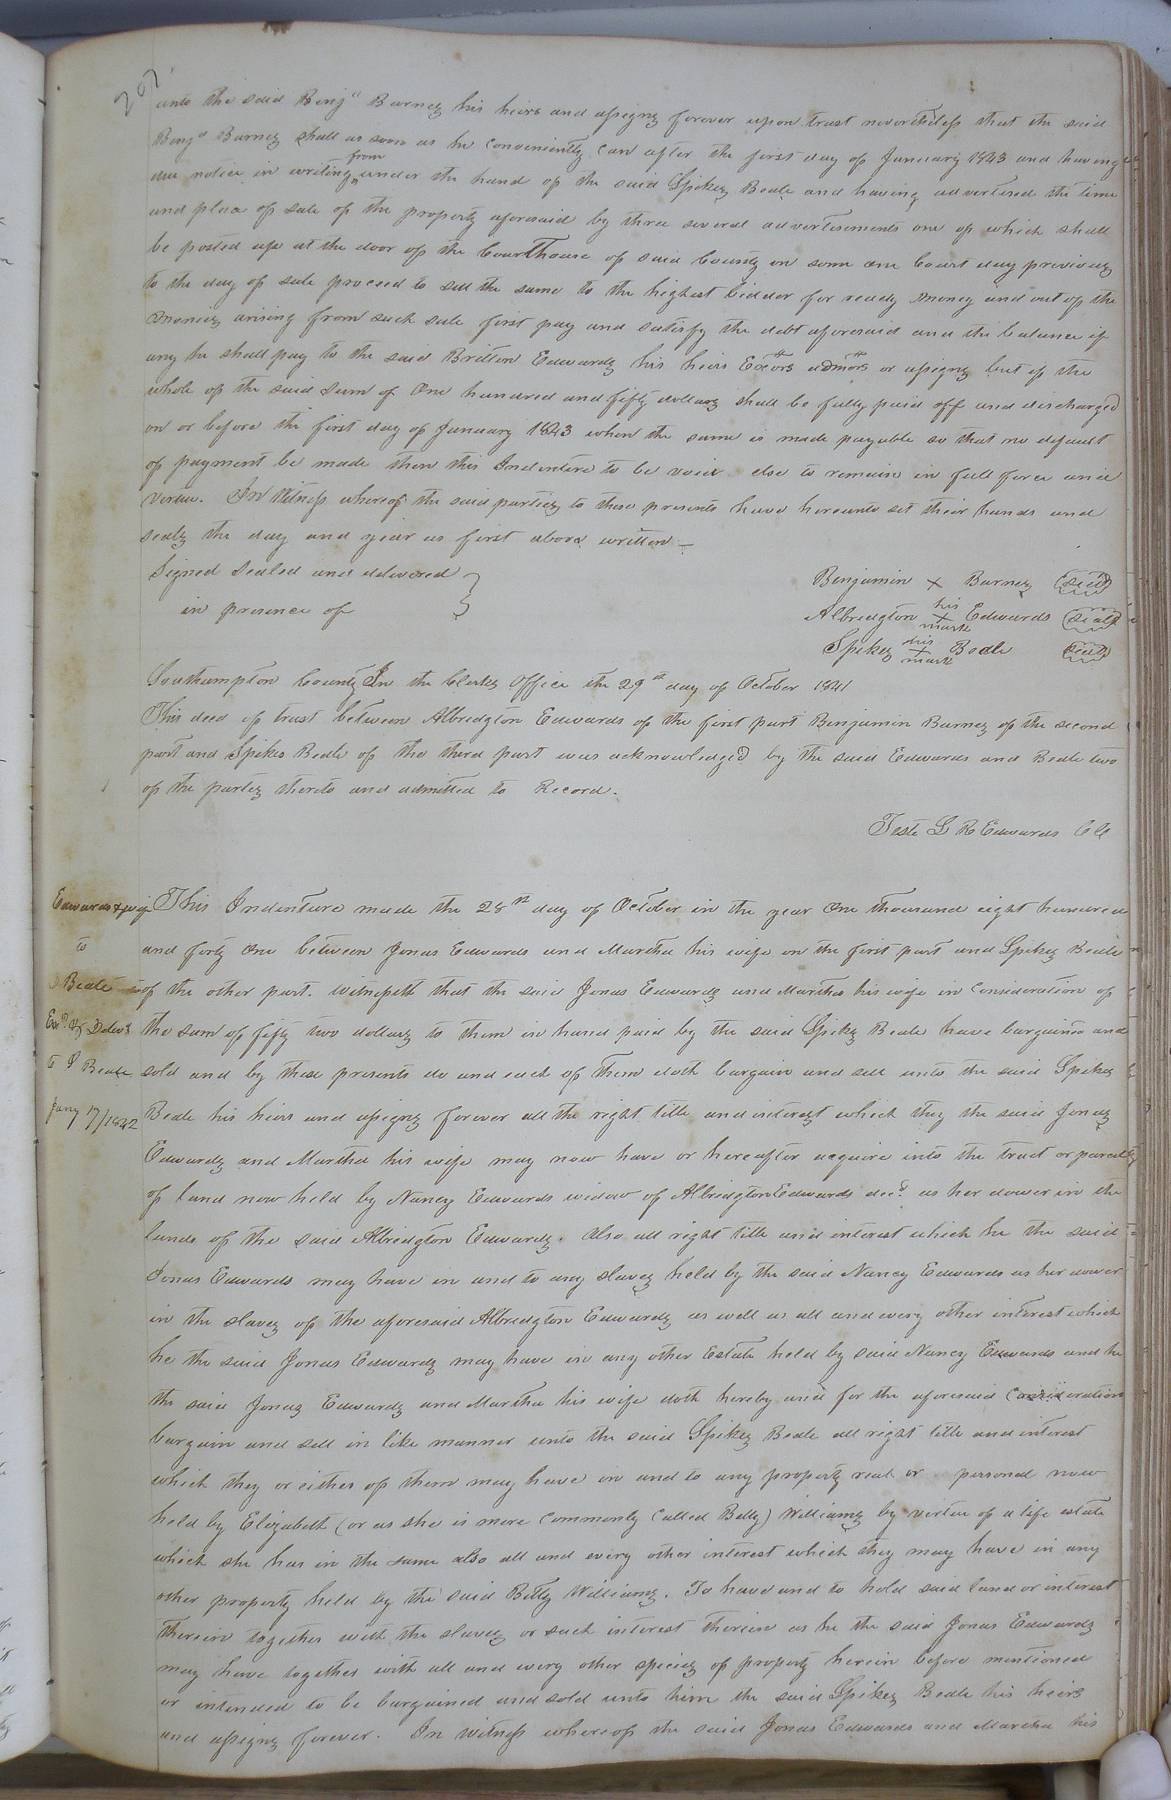 207
unto the said Benja Barnes his heirs and assigns forever upon trust nevertheless that the said
Benja Barnes shall as soon as he conveniently can after the first day of January 1843 and having
due notice in writing from under the hand of the said Spikes Beale and having advertised the time
and place of sale of the property aforesaid by three several advertisements one of which shall
be posted up at the door of the Courthouse of said County on some one Court day previous
to the day of sale proceed to sell the same to the highest bidder for ready money and out of the
monies arising from such sale first pay and satisfy the debt aforesaid and the balance if
any he shall pay to the said Britton Edwards his heirs Exors admors or assigns but if the
whole of the said sum of One hundred and fifty dollars shall be fully paid off and discharged
on or before the first day of January 1843 when the same is made payable so that no default
of payment be made then this Indenture to be void else to remain in full force and
virtue. In Witness whereof the said parties to these presents have hereunto set their hands and
seals the day and year as first above written –
Signed Sealed and delivered
in presence of
Benjamin x Barnes (seal)
Albridgton his x mark Edwards (seal)
Spikes his x mark Beale (seal)
Southampton County In the Clerks Office the 29th day of October 1841
This deed of trust between Albridgton Edwards of the first part Benjamin Barnes of the second
part and Spikes Beale of the third part was acknowledged by the said Edwards and Beale two
of the parties thereto and admitted to Record.
Teste L R Edwards CC
Edwards & wife
to
Beale
Exd & Deld
to S Beale
Jany 17/1842
This Indenture made the 28th day of October in the year One thousand eight hundred
and forty one between Jonas Edwards and Martha his wife on the first part and Spikes Beale
of the other part. Witnesseth that the said Jonas Edwards and Martha his wife in consideration of
the sum of fifty two dollars to them in hand paid by the said Spikes Beale have bargained and
sold and by these presents do and each of them doth bargain and sell unto the said Spikes
Beale his heirs and assigns forever all the right title and interest which they the said Jonas
Edwards and Martha his wife may now have or hereafter acquire into the tract or parcel
of land now held by Nancy Edwards widow of Albridgton Edwards decd. as her dower in the
lands of the said Albridgton Edwards. Also all right title and interest which he the said
Jonas Edwards may have in and to any slaves held by the said Nancy Edwards as her dower
in the slaves of the aforesaid Albridgton Edwards as well as all and every other interest which
he the said Jonas Edwards may have in any other Estate held by said Nancy Edwards and he
the said Jonas Edwards and Martha his wife doth hereby and for the aforesaid Consideration
bargain and sell in like manner unto the said Spikes Beale all right title and interest
which they or either of them may have in and to any property real or personal now
held by Elizabeth (or as she is more commonly called Betty) Williams by virtue of a life estate
which she has in the same also all and every other interest which they may have in any
other property held by the said Betty Williams. To have and to hold said land or interest
therein together with the slaves or such interest therein as he the said Jonas Edwards
may have together with all and every other species of property herein before mentioned
or intended to be bargained and sold unto him the said Spikes Beale his heirs
and assigns forever. In witness whereof the said Jonas Edwards and Martha his